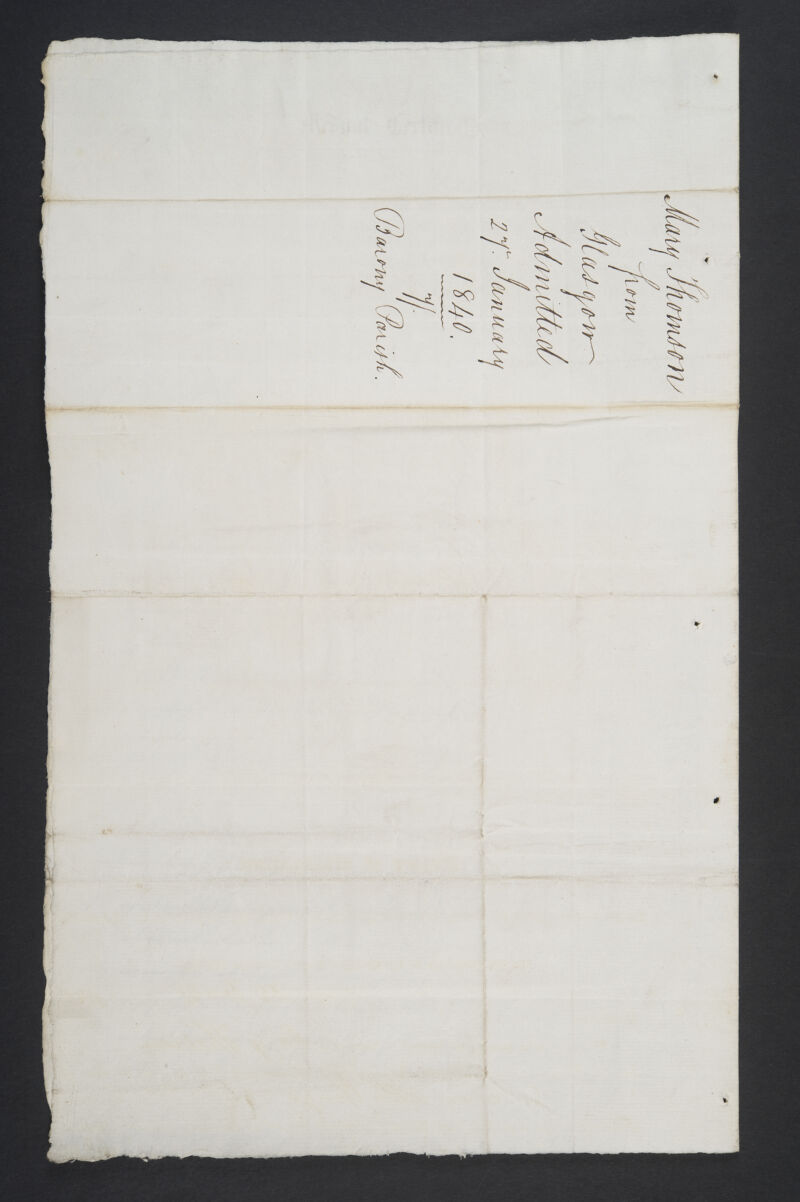 Mary Thomson
from
Glasgow
Admitted
27. January
1840.
of
Barony Parish.